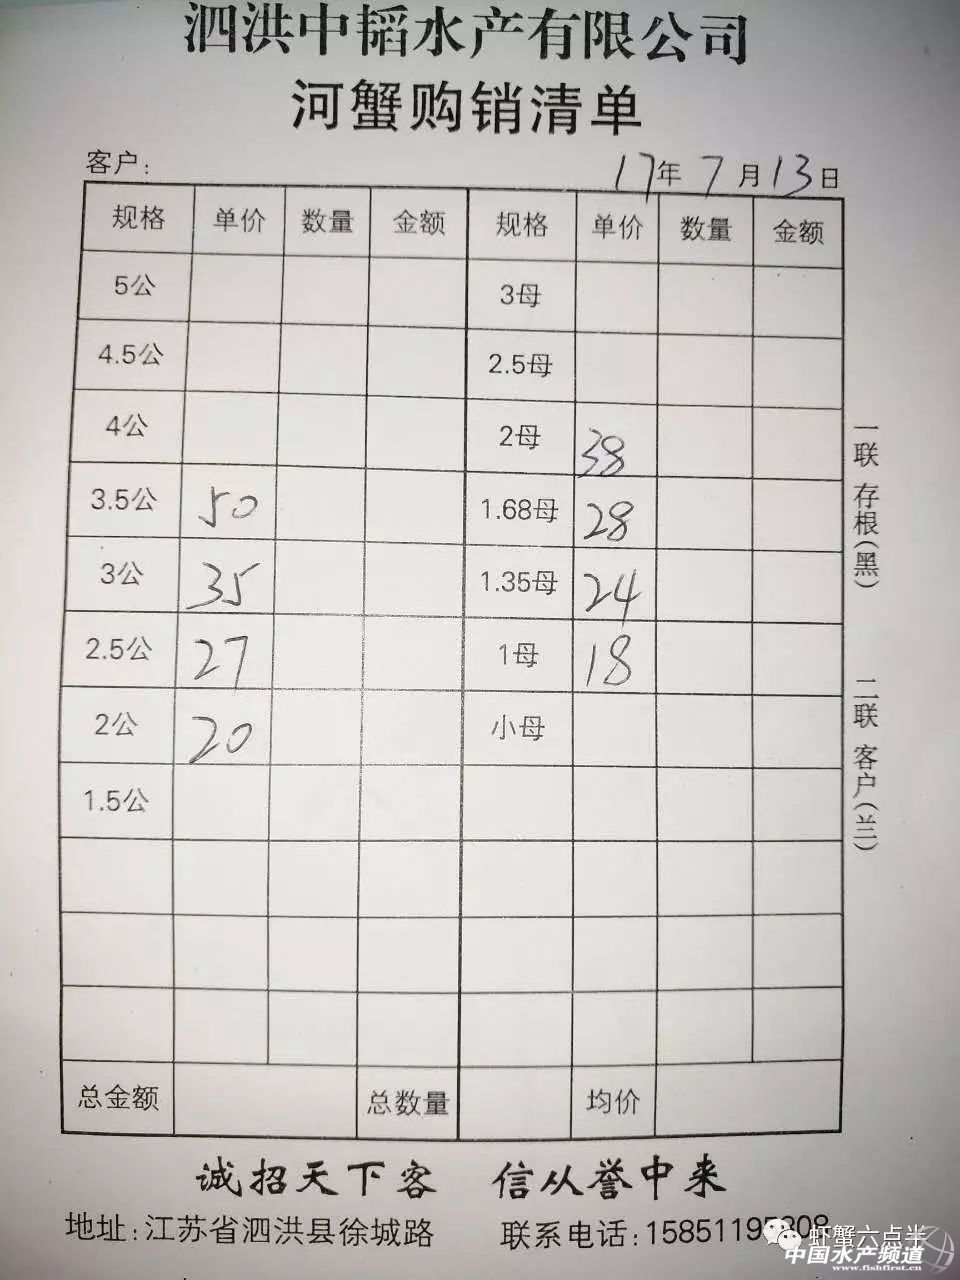 泗洪中韬水产有限公司
河蟹购销清单
客户: 17年 7月13日
规格 单价 数量 金额 规格 单价 数量 金额
5公 3母
4.5公 2.5母
4公 2母 38
3.5公 50 1.68母 28
3公 35 1.35母 24
2.5公 27 1母 18
2公 20 小母
1.5公
总金额 总数量 均价
一联 存根(黑) 二联 客户(兰)
诚招天下客 信从誉中来
地址:江苏省泗洪县徐城路 联系电话:15851195808
虾蟹六点半
中国水产频道
www.fishfirst.cn